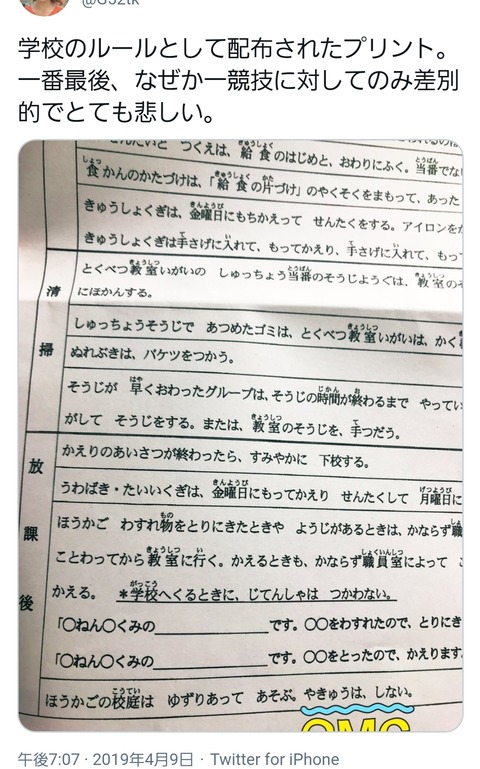 学校のルールとして配布されたプリント。
一番最後、なぜか一競技に対してのみ差別
的でとても悲しい。
つくえは、給食のはじめと、おわりにふく。当番でな
食かんのかたづけは、「給食の片づけ」のやくそくをまもって、あった
きゅうしょくぎは、金曜日にもちかえって せんたくをする。アイロンを
きゅうしょくぎは手さげに入れて、もってかえり、手さげに入れて、もっ
清掃
とくべつ教室いがいの しゅっちょう当番のそうじようぐは、教室の
にほかんする。
しゅっちょうそうじで あつめたゴミは、とくべつ教室いがいは、かく
ぬれぶきは、バケツをつかう。
そうじが 早くおわったグループは、そうじの時間が終わるまで やってい
がして そうじをする。または、教室のそうじを、手つだう。
放課後
かえりのあいさつが終わったら、すみやかに 下校する。
うわばき・たいいくぎは、金曜日にもってかえり せんたくして 月曜日に
ほうかご わすれ物をとりにきたときや ようじがあるときは、かならず職
ことわってから教室に行く。かえるときも、かならず職員室によって
かえる。 *学校へくるときに、じてんしゃは つかわない。
「〇ねん〇くみの____________です。〇〇をわすれたので、とりにき
「〇ねん〇くみの____________です。〇〇をとったので、かえります
ほうかごの校庭は ゆずりあって あそぶ。やきゅうは、しない。
OMG
午後7:07 · 2019年4月9日 · Twitter for iPhone